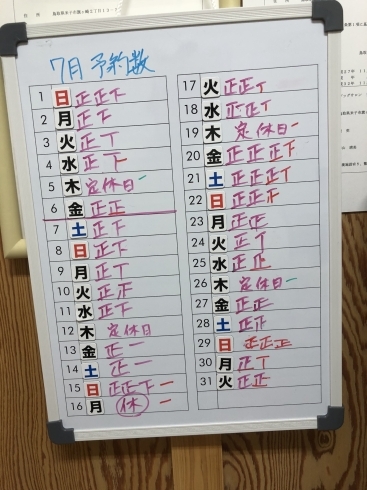 7月予約数
1 日 正正下
2 月 正下
3 火 正丅
4 水 正下
5 木 定休日 一
6 金 正正
7 土 正下
8 日 正下
9 月 正丅
10 火 正正
11 水 正下
12 木 定休日
13 金 正一
14 土 正一
15 日 正正下一
16 月 休 一
17 火 正正丅
18 水 正正丅
19 木 定休日 一
20 金 正正正下
21 土 正正正丅
22 日 正正下
23 月 正正
24 火 正丅
25 水 正正
26 木 定休日 一
27 金 正正
28 土 正下
29 日 正正正
30 月 正丅
31 火 正正